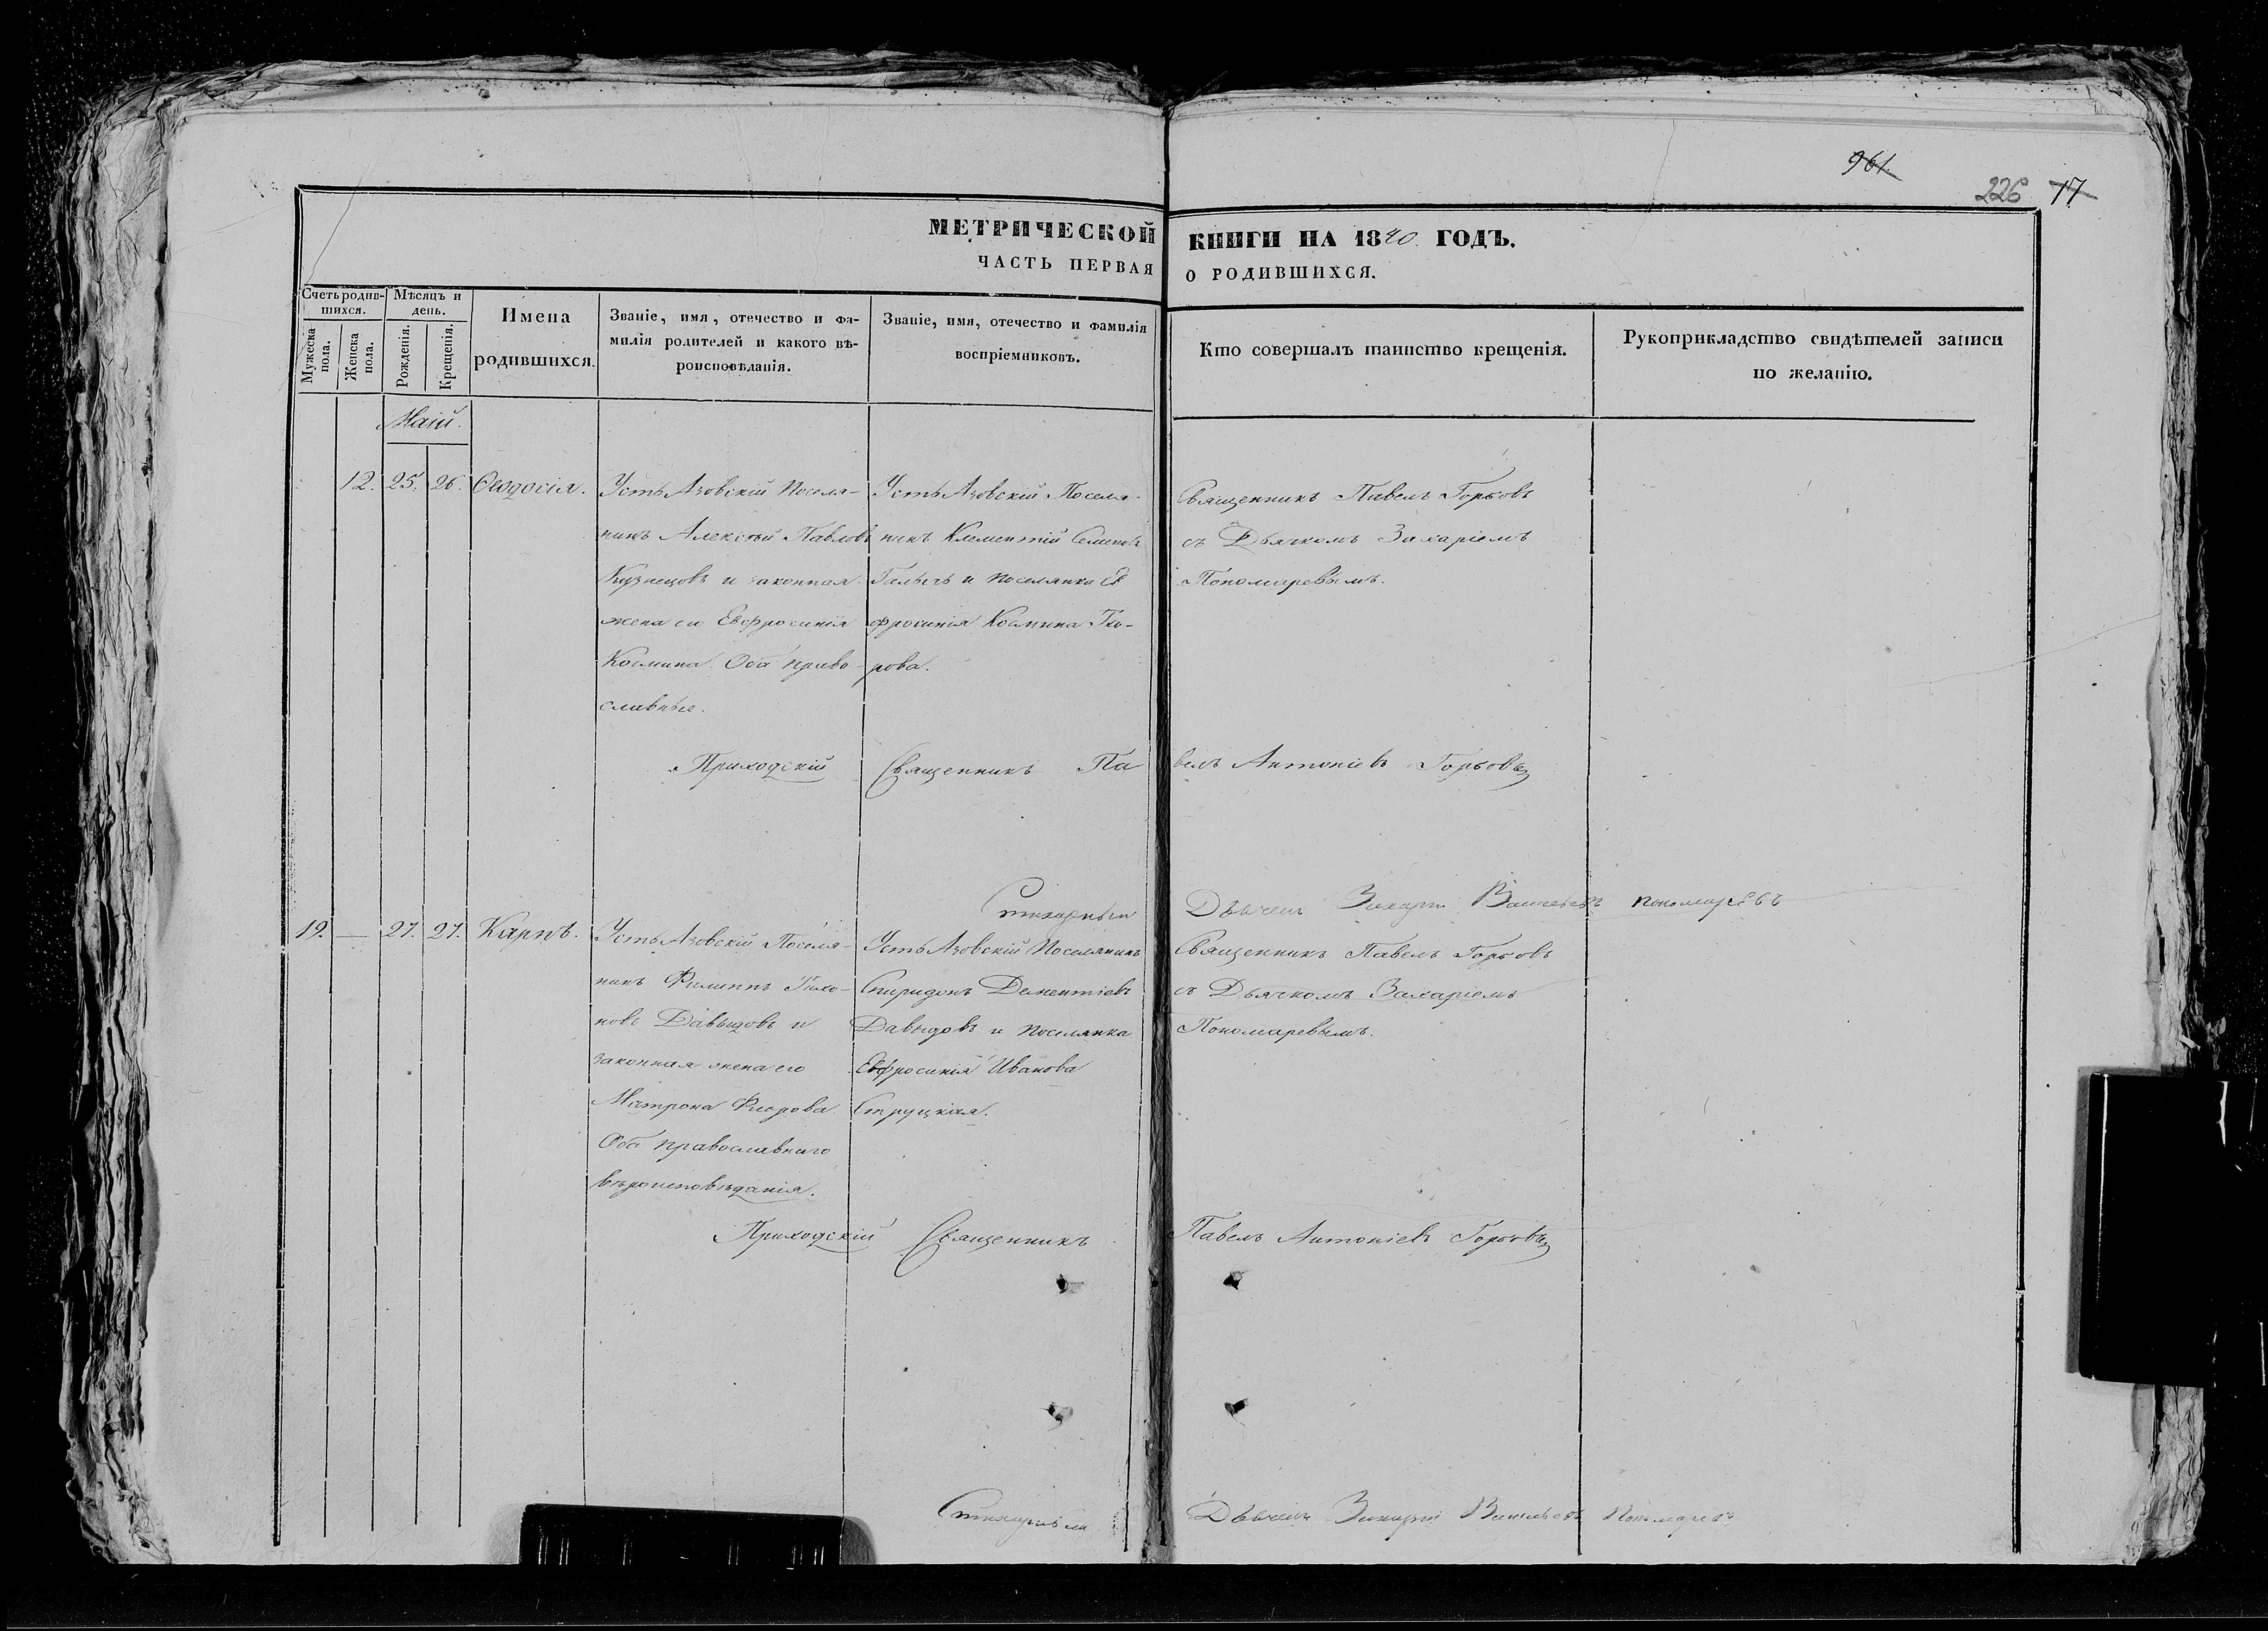 961.
226 17
МЕТРИЧЕСКОЙ КНИГИ НА 1840 ГОДЪ.
ЧАСТЬ ПЕРВАЯ О РОДИВШИХСЯ.
Счетъ родившихся.
Мужеска пола.
Женска пола.
Мѣсяцъ и день.
Рожденія.
Крещенія.
Имена родившихся.
Званіе, имя, отечество и фа-
милія родителей и какого вѣ-
роисповѣданія.
Званіе, имя, отечество и фамилія
воспріемниковъ.
Кто совершалъ таинство крещенія.
Рукоприкладство свидѣтелей записи
по желанію.
Маій.
12. 25. 26. Ѳеодосія.
Усть Азовскій Поселя-
нинъ Алексѣй Павловъ
Кузнецовъ и законная
жена его Евфросинія
Космина. Оба право-
славные.
Усть Азовскій Поселя-
нинъ Клементій Семеновъ
и поселянка Ев
фросинія Космина
рова.
Священникъ Павелъ Горбовъ
съ Дьячкомъ Захаріемъ
Пономаревымъ.
Приходскій Священникъ Павелъ Антоніевъ Горбовъ
Стихарный Дьячекъ Захарій Васильевъ Пономаревъ
19. — 27. 27. Карпъ.
Усть Азовскій Поселя-
нинъ Филиппъ Тихо-
новъ Давыдовъ и
законная жена его
Матрона
Оба православнаго
вѣроисповѣданія.
Усть Азовскій Поселянинъ
Спиридонъ Дементіевъ
Давыдовъ и поселянка
Евфросинія Иванова
Священникъ Павелъ Горбовъ
съ Дьячкомъ Захаріемъ
Пономаревымъ.
Приходскій Священникъ Павелъ Антоніевъ Горбовъ
Стихарный Дьячекъ Захарій Васильевъ Пономаревъ